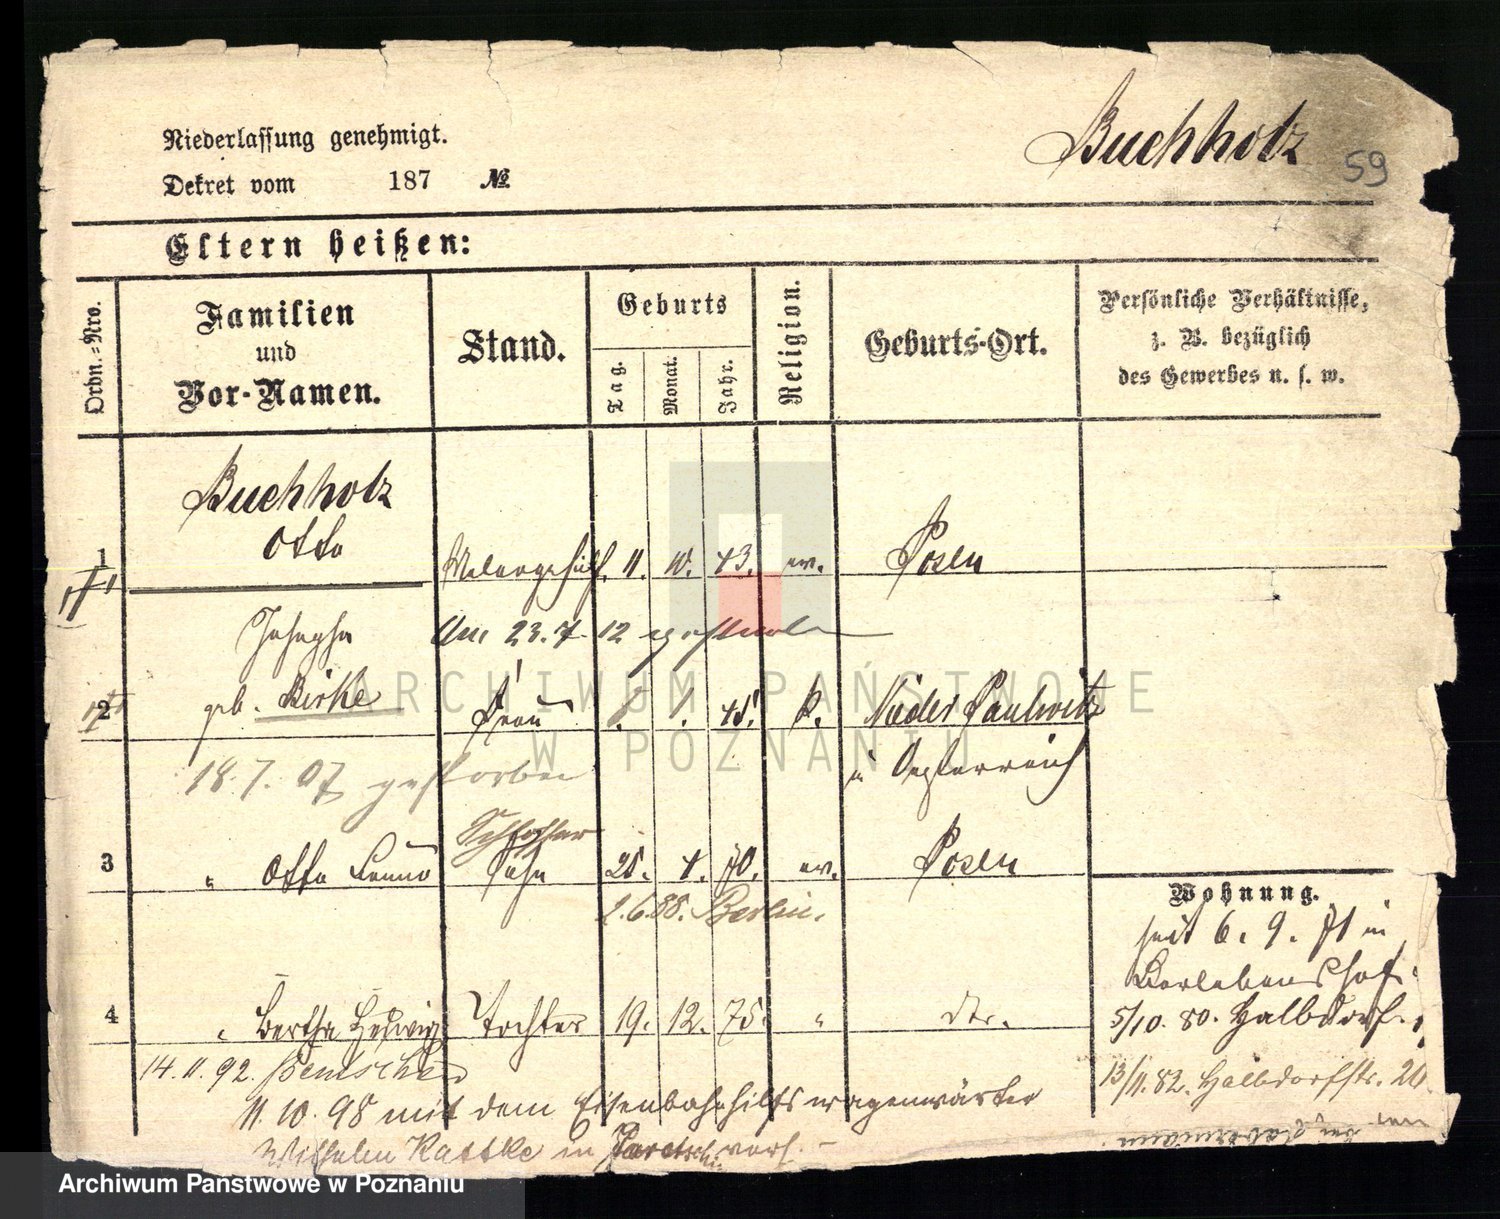 Niederlassung genehmigt.
Dekret vom 187 №
Buchholz
59
Eltern heißen:
Ordn.-Nro.
Familien
und
Vor-Namen.
Stand.
Geburts
Tag.
Monat.
Jahr.
Religion.
Geburts-Ort.
Persönliche Verhältnisse,
z. B. bezüglich
des Gewerbes u. s. w.
Buchholz
1 Otto 11. 10. 43. ev. Posen
Josepha Am 23. 7. 12 gestorben
2 geb. Birke Frau 1. 1. 45. k. Nieder
18. 7. 07 gestorben in Oesterreich
Schlosser
3 " Otto Benno Sohn 25. 4. 70. ev. Posen
2.6.88. Berlin.
Wohnung.
seit 6. 9. 71 in
4 " Bertha Hedwig Tochter 19. 12. 75. " dto.
5/10. 80. Halbdorfstr.
14. 11. 92.
13/11. 82. Halbdorfstr.
11. 10. 98 mit dem Eisenbahnhilfswagenwärter
Wilhelm Rattke in verh.
ARCHIWUM PAŃSTWOWE
W POZNANIU
Archiwum Państwowe w Poznaniu